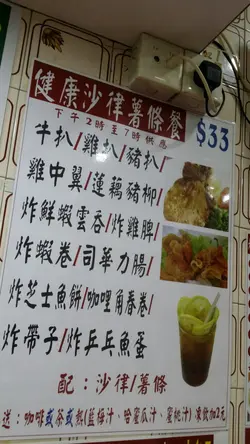 健康沙律薯條餐
下午2時至7時供應
$33
牛扒/雞扒/豬扒/
雞中翼/蓮藕豬柳/
炸鮮蝦雲吞/炸雞脾/
炸蝦卷/司華力腸/
炸芝士魚餅/咖哩角春卷/
炸帶子/炸乒乓魚蛋
配：沙律/薯條
送：咖啡或茶或熱(藍梅汁、哈蜜瓜汁、蜜桃汁)凍飲加2元